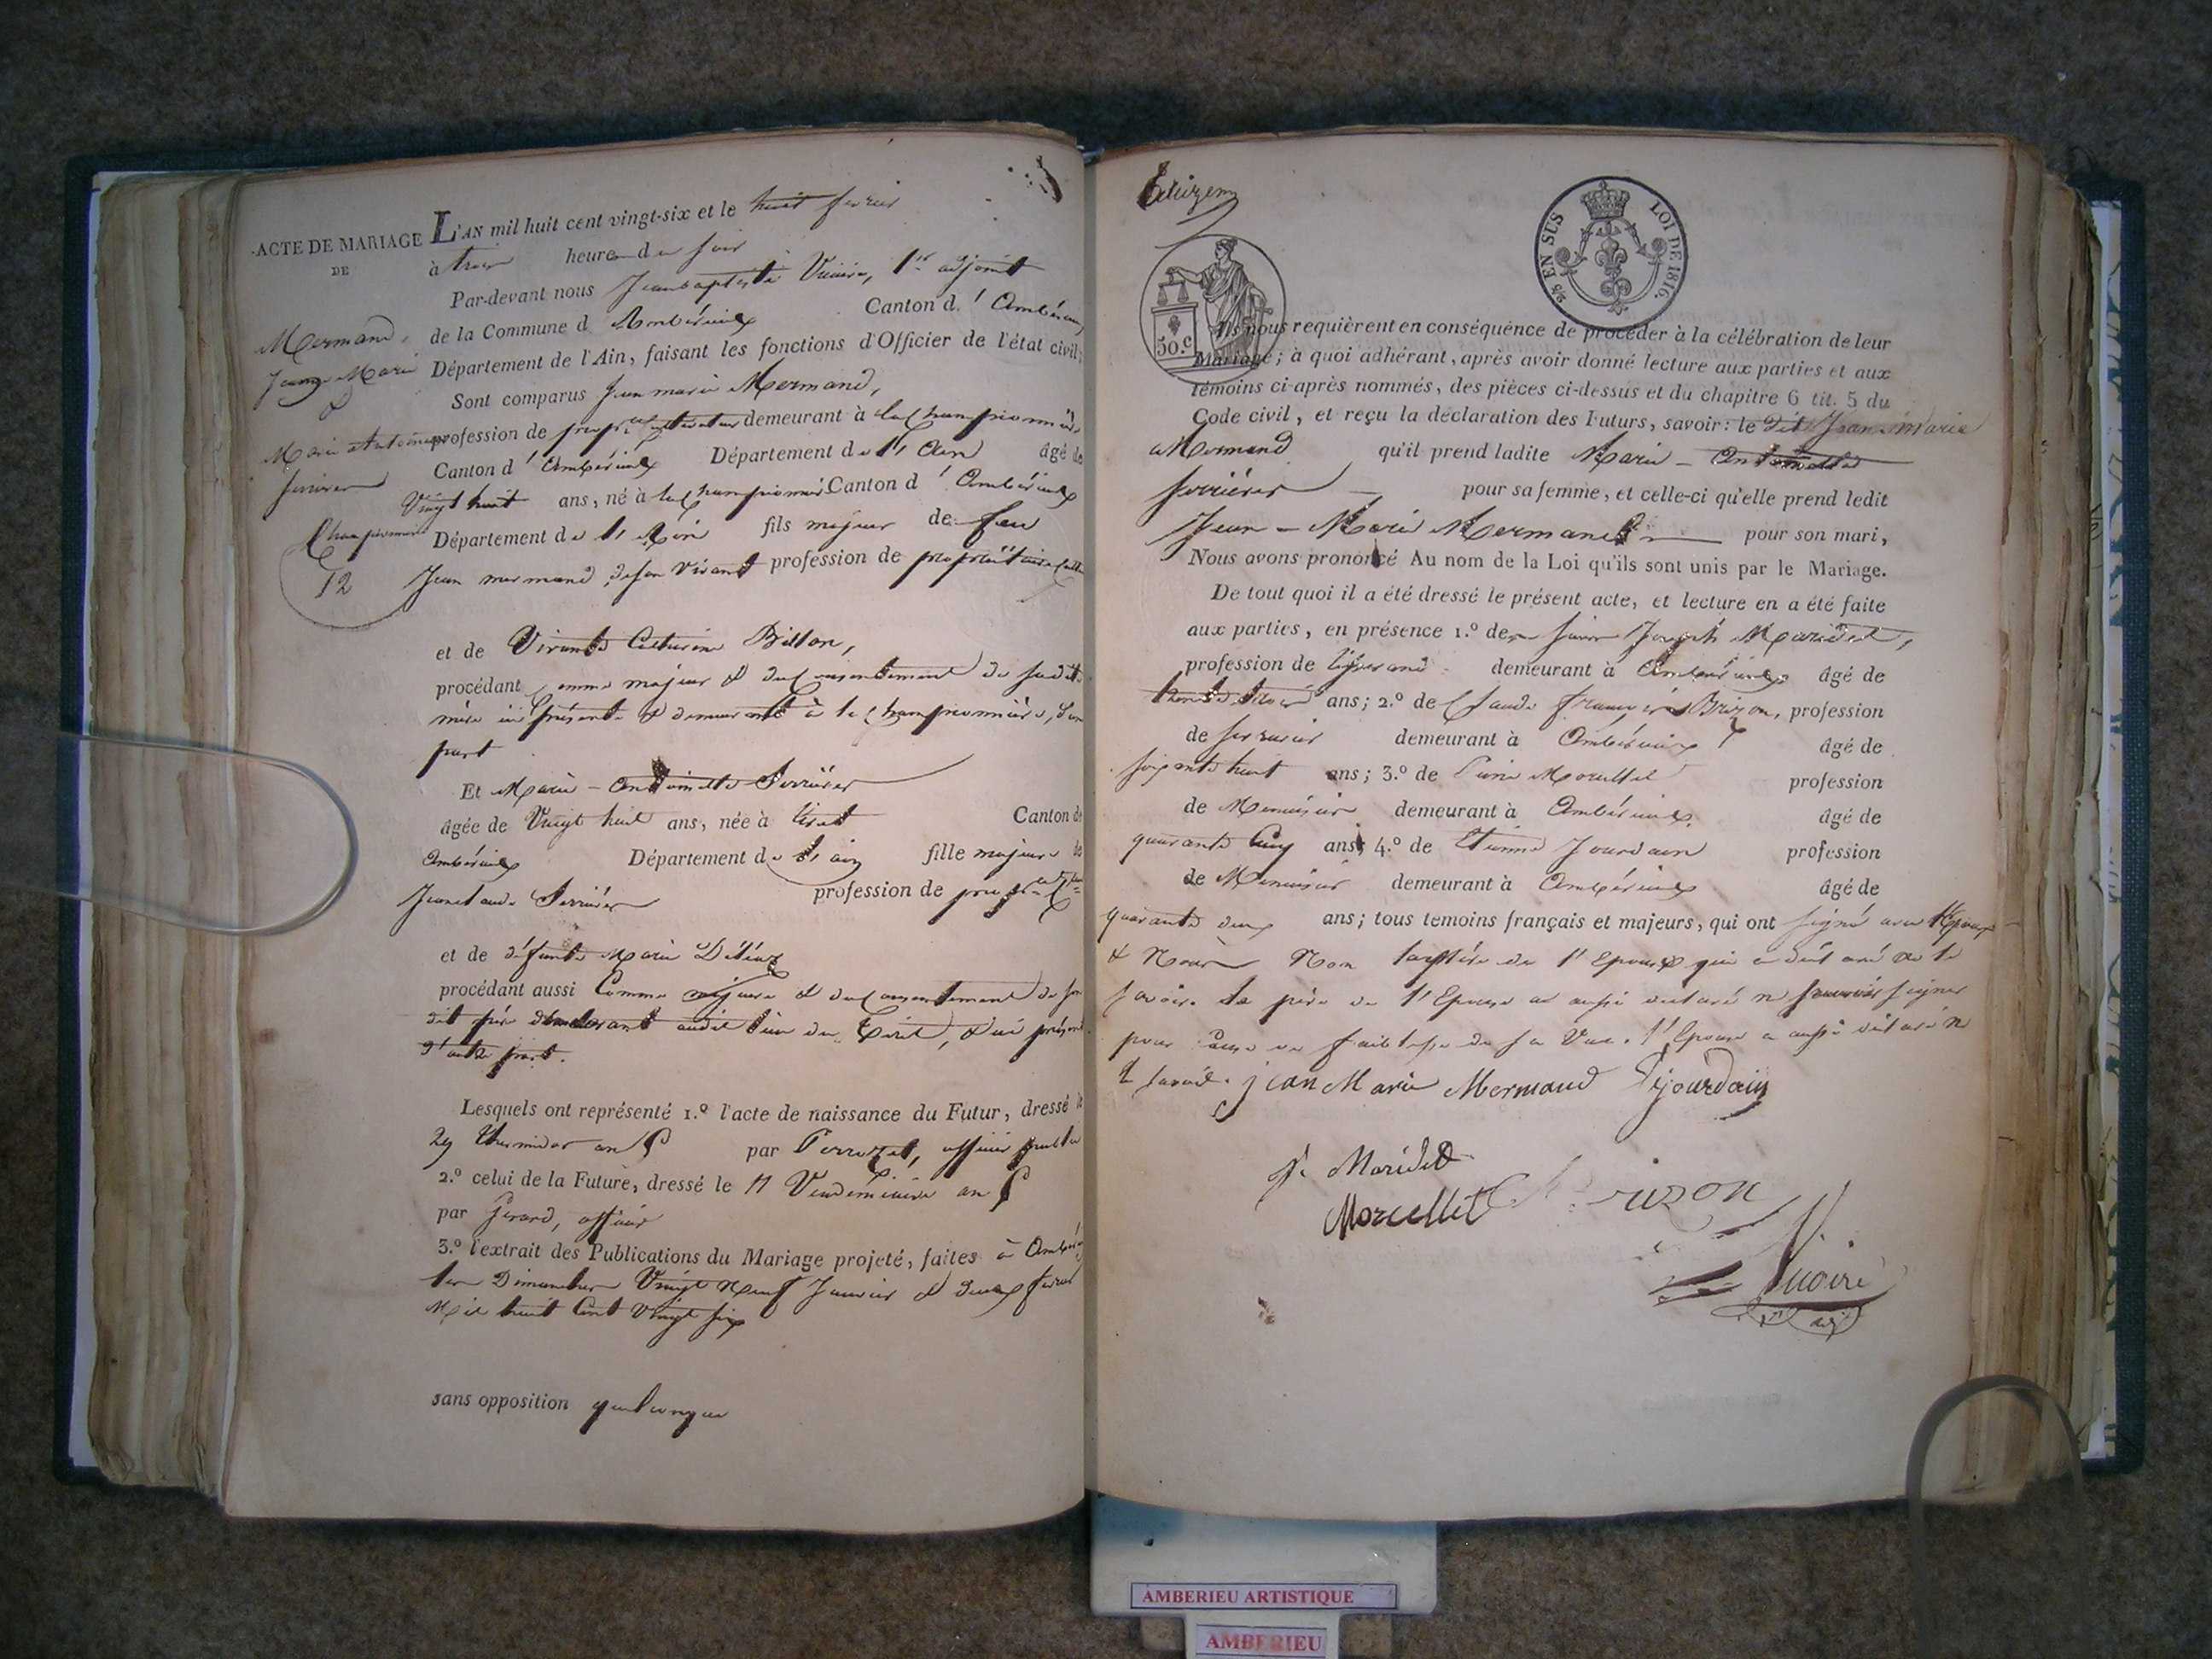 ACTE DE MARIAGE
DE
Mermand
Jean Marie
&
Marie Antoinette
Serrières
Championnière
12
L'AN mil huit cent vingt-six et le huit février
à trois heures du soir
Par-devant nous Jeanbaptiste Vicaire, 1er adjoint
de la Commune d'Ambérieux Canton d'Ambérieux
Département de l'Ain, faisant les fonctions d'Officier de l'état civil,
Sont comparus Jean marie Mermand,
profession de demeurant à la Championnière
Canton d'Ambérieux Département de l'Ain âgé de
Vingt huit ans, né à la Championnière Canton d'Ambérieux
Département de l'Ain fils majeur de feu
Jean mermand, de son vivant profession de propriétaire
et de Vivante Catherine Billon,
procédant comme majeur & du Consentement de sadite
mère ici présente & demeurant à la Championnière, d'une
part
Et Marie - antoinette Serrières
âgée de Vingt huit ans, née à tiret Canton de
Ambérieux Département de l'ain fille majeure de
Jean claude Serrières profession de
et de défunte Marie
procédant aussi Comme majeure & du Consentement de son
dit père demeurant audit lieu du tiret, & ici présent
d'autre part.
Lesquels ont représenté 1.º l'acte de naissance du Futur, dressé le
29 thermidor an par officier public
2.º celui de la Future, dressé le 11 Vendémiaire an
par Gerard, officier
3.º l'extrait des Publications du Mariage projeté, faites à
les Dimanches Vingt neuf Janvier &
Mil huit Cent Vingt six
sans opposition quelconque
50.c
EN SUS LOI DE 1816.
Ils nous requièrent en conséquence de procéder à la célébration de leur
Mariage; à quoi adhérant, après avoir donné lecture aux parties et aux
témoins ci-après nommés, des pièces ci-dessus et du chapitre 6 tit. 5 du
Code civil, et reçu la déclaration des Futurs, savoir: le dit Jean-marie
Mermand qu'il prend ladite Marie - antoinette
Serrières pour sa femme, et celle-ci qu'elle prend ledit
Jean - Marie Mermand pour son mari,
Nous avons prononcé Au nom de la Loi qu'ils sont unis par le Mariage.
De tout quoi il a été dressé le présent acte, et lecture en a été faite
aux parties, en présence 1.º de Joseph Maridet,
profession de tisserand demeurant à Ambérieux âgé de
trente trois ans; 2.º de Claude françois Brizon, profession
de serrurier demeurant à Ambérieux âgé de
soixante huit ans; 3.º de profession
de Menuisier demeurant à Ambérieux âgé de
quarante Cinq ans; 4.º de Etienne Jourdain profession
de Menuisier demeurant à Ambérieux âgé de
quarante deux ans; tous temoins français et majeurs, qui ont signé avec l'Epoux
& Nous Non la mère de l'Epoux qui a déclaré ne le
savoir. Le père de l'Epouse a aussi déclaré ne signer
pour cause de faiblesse de sa Vue. l'Epouse a aussi déclaré ne
le savoir. jean Marie Mermand Ejourdain
Maridet
Morcellet
AMBERIEU ARTISTIQUE
AMBERIEU